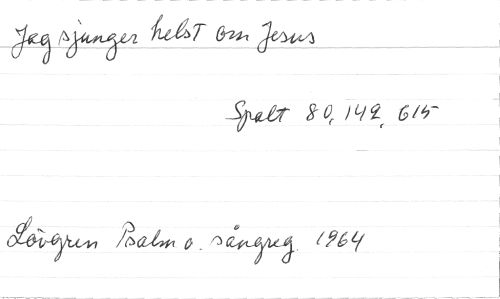 Jag sjunger helst om Jesus
Spalt 80, 142, 615
Lövgren Psalm o. sångreg. 1964